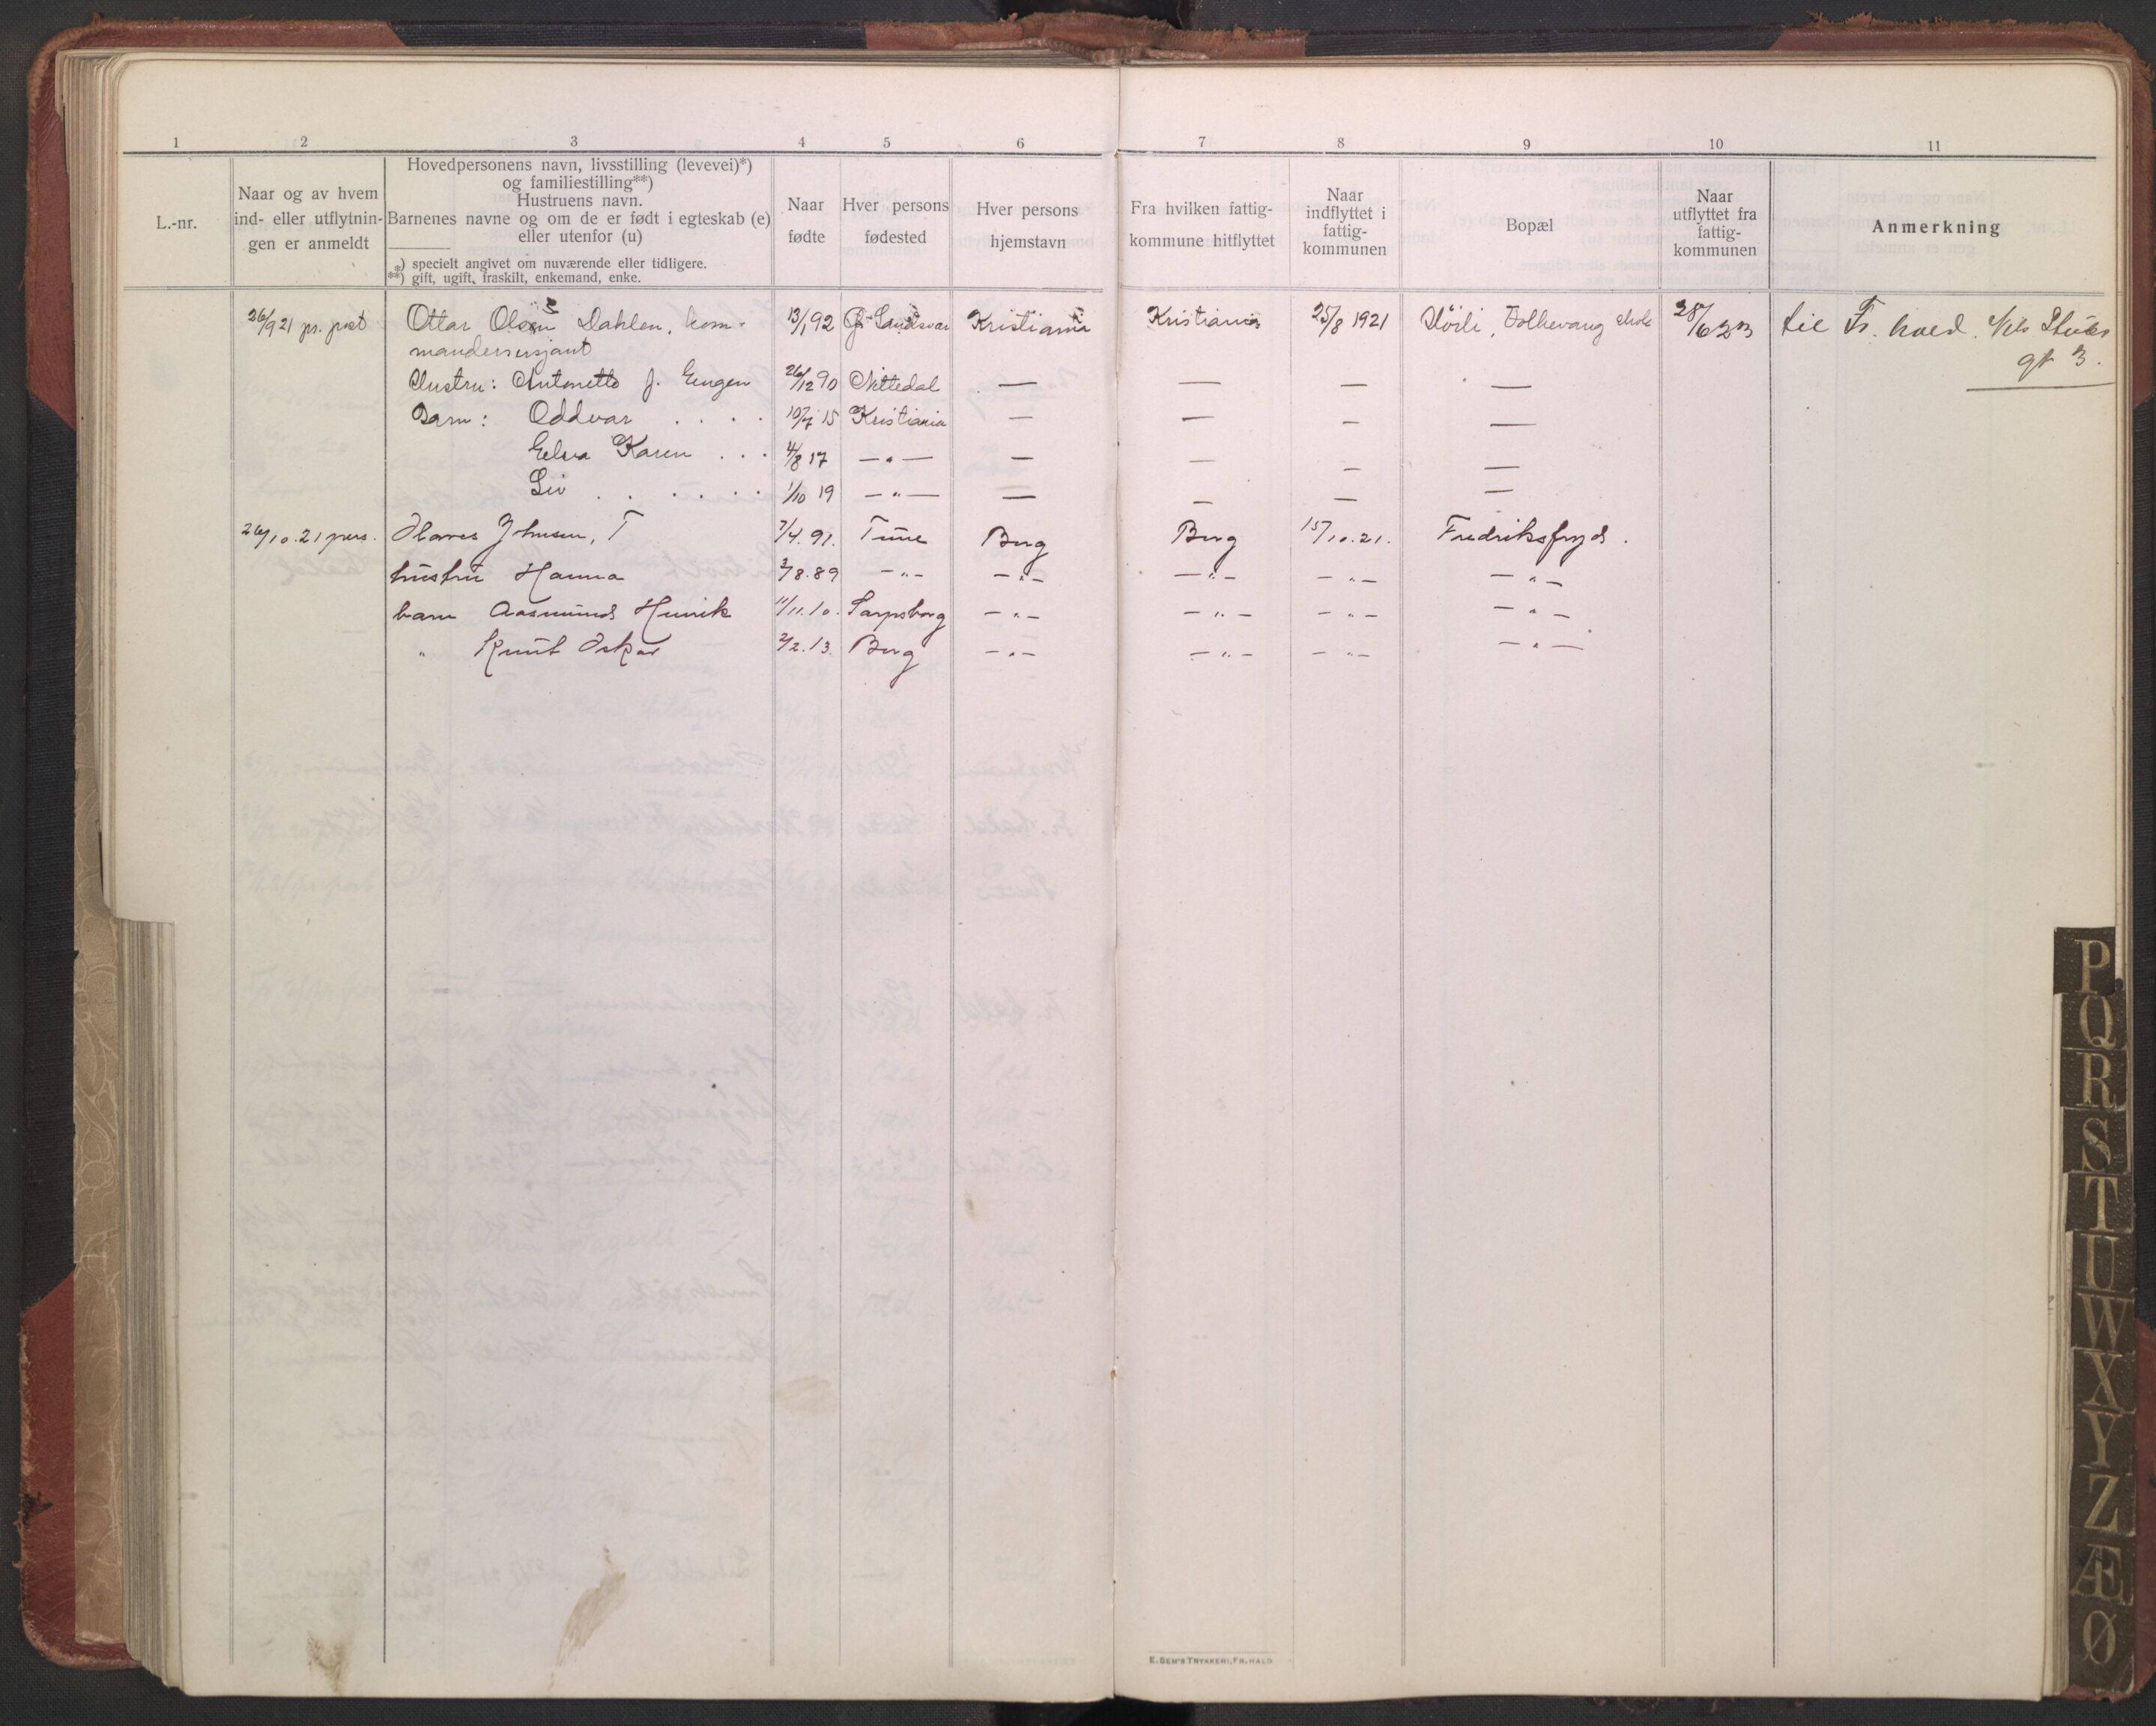 1 2 3 4 5 6 7 8 9 10 11
L.-nr.
Naar og av hvem
ind- eller utflytnin-
gen er anmeldt
Hovedpersonens navn, livsstilling (levevei)*)
og familiestilling**)
Hustruens navn.
Barnenes navne og om de er født i egteskab (e)
eller utenfor (u)
*) specielt angivet om nuværende eller tidligere.
**) gift, ugift, fraskilt, enkemand, enke.
Naar
fødte
Hver persons
fødested
Hver persons
hjemstavn
Fra hvilken fattig-
kommune hitflyttet
Naar
indflyttet i
fattig-
kommunen
Bopæl
Naar
utflyttet fra
fattig-
kommunen
Anmerkning
26/9 21 pr. post Ottar Olsen Dahlen, kom- 13/1 92 Sandsvær Kristiania Kristiania 25/8 1921 skole 28/6 23 til Fr. hald. Nils Stubs
mandersersjant gt 3.
Hustru: Antonette f. Engen 26/12 90 Nittedal — — — —
Barn: Oddvar . . . . 10/7 15 Kristiania — — — —
Karen . . . 4/8 17 — " — — — — —
Liv . . . . . . 1/10 19 — " — — — — —
26/10. 21 pers. Johnsen, T 7/4. 91. Tune Berg Berg 15/10. 21. Fredriksfryd.
hustru Hanna 3/8. 89 — " — — " — — " — — " — — " —
barn Aasmund Henrik 11/11. 10. Sarpsborg — " — — " — — " — — " —
" Knut Oskar 2/2. 13. Berg — " — — " — — " — — " —
E. SEM'S TRYKKERI, FR.HALD
P
Q
R
S
T
U
W
X
Y
Z
Æ
Ø